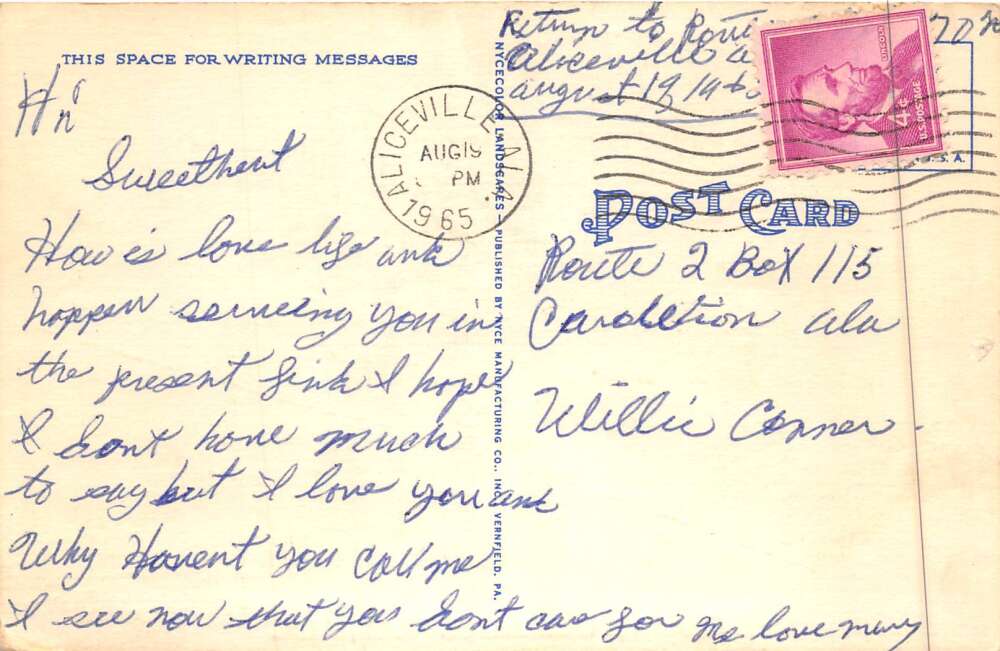 Return to Rout 70
THIS SPACE FOR WRITING MESSAGES
Aliceville a
august 19 196
LINCOLN
4¢
U.S. POSTAGE
U.S.A.
ALICEVILLE ALA.
AUG 19
PM
1965
Hi
Sweetheart
POST CARD
How is love life and
Route 2 Box 115
happen serveing you in
Carolltion ala
the present I hope
I dont have much
Willie Conner
to say but I love you and
Why Havent you Call me
I see now that you dont care for me love mary
NYCECOLOR LANDSCAPES—PUBLISHED BY NYCE MANUFACTURING CO., INC., VERNFIELD, PA.